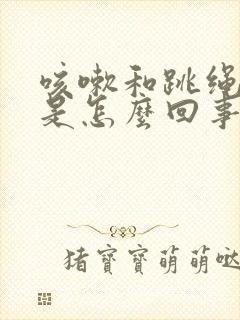 咳嗽和跳绳
是怎麽回事
猪寶寶萌萌哒